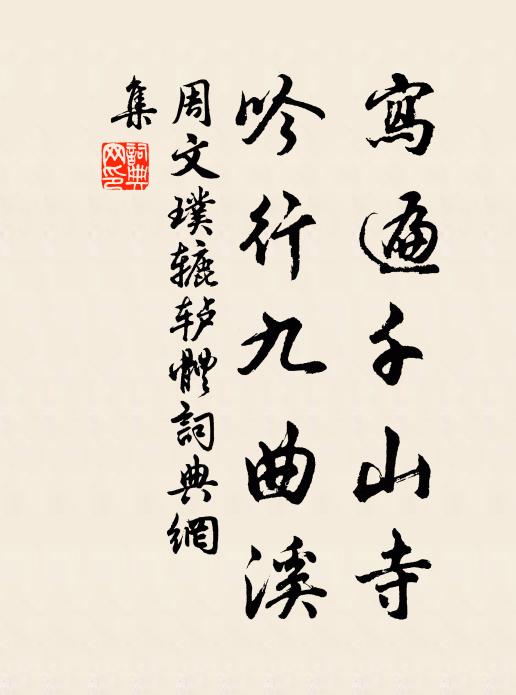 寫遍千山寺
吟行九曲溪
周文璞辘轳體詞典網
集
詞典網印